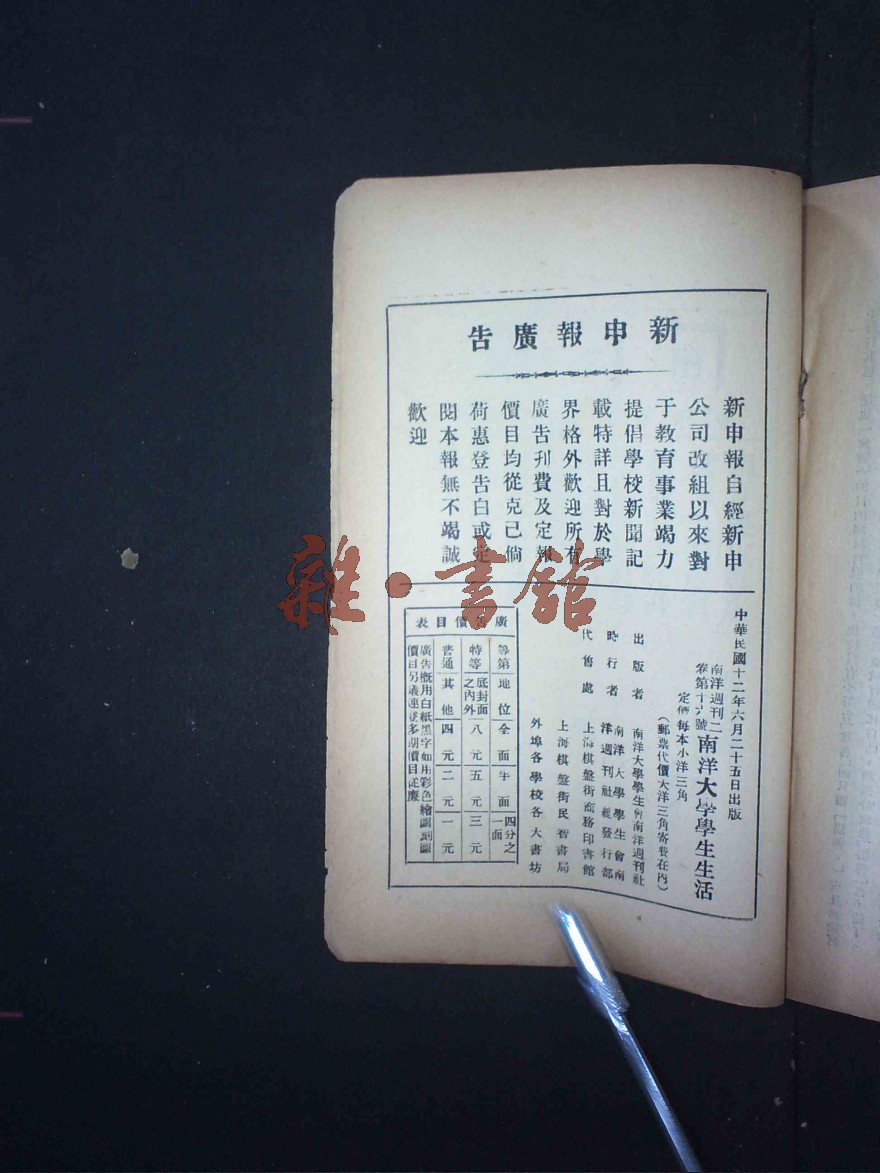 新申報廣告
新申報自經新申
公司改組以來對
于教育事業竭力
提倡學校新聞記
載特詳且對於學
界格外歡迎所有
廣告刊費及定報
價目均從克己倘
荷惠登告白或定
閱本報無不竭誠
歡迎
中華民國十二年六月二十五日出版
南洋週刊二
卷第十六號
南洋大學學生生活
定價每本小洋三角
（郵票代價大洋三角寄費在內）
出版者 南洋大學學生會南洋週刊社
發行者 南洋大學學生會南
洋週刊社發行部
代售處 上海棋盤街商務印書館
上海棋盤街民智書局
外埠各學校各大書坊
廣告價目表
等第 地位 全面 半面 四分之一面
特等 底封面之內外 八元 五元 三元
普通 其他 四元 二元 一元
廣告概用白紙黑字如用彩色繪圖刻圖
價目另議連登多期價目從廉
雜·書館